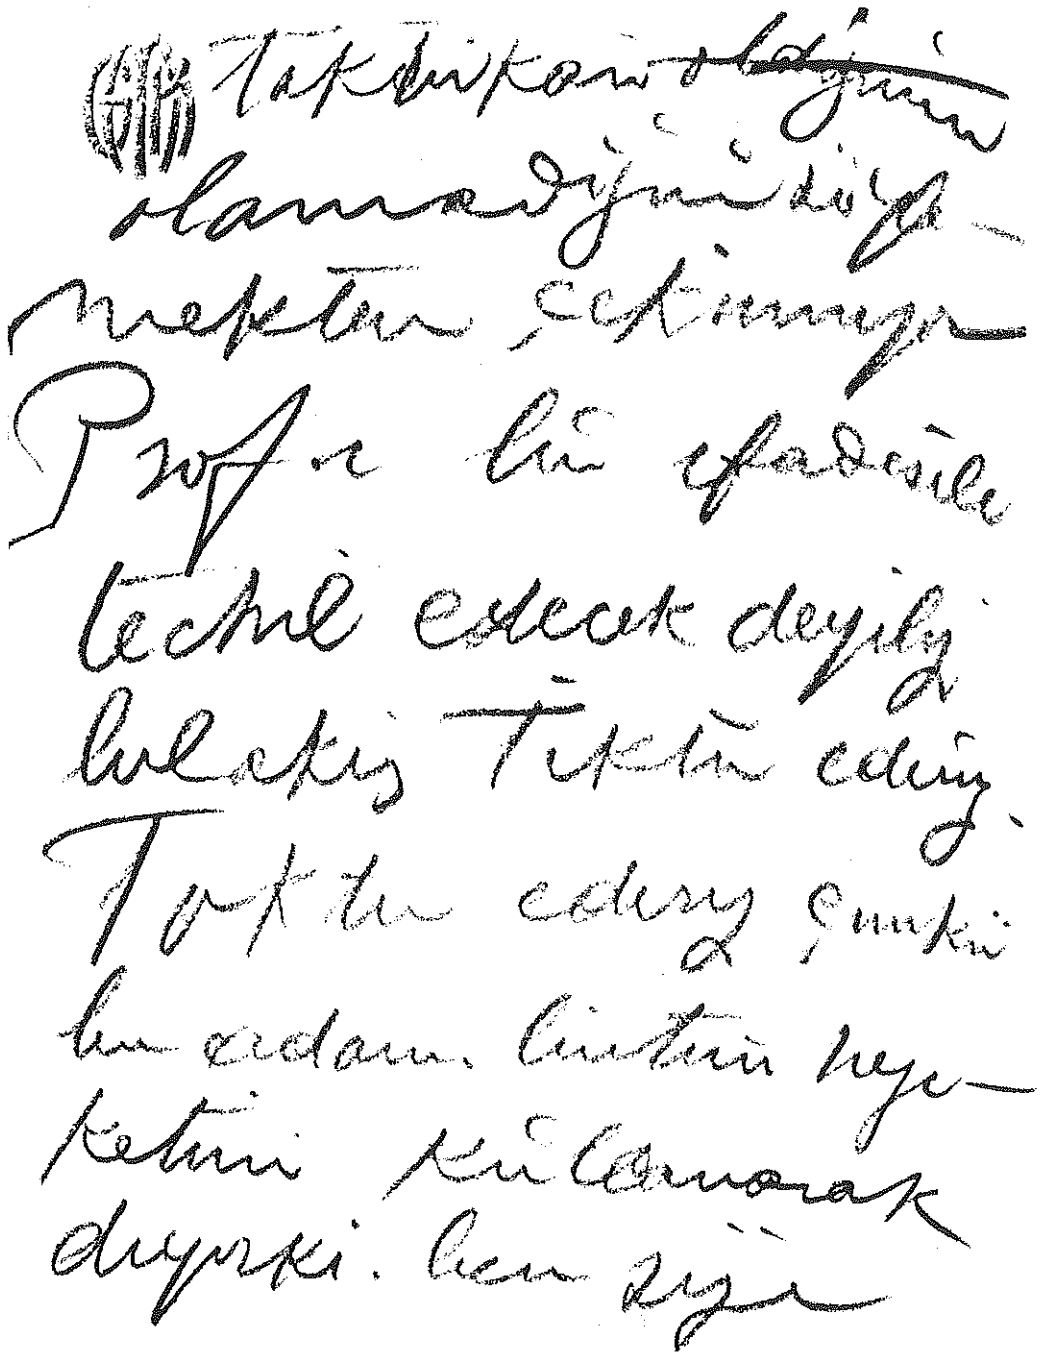 takdirkâr olduğunu
olamadığını söyle-
mekten çekinmiyor
Prof. e bu ifadesile
techil edecek deyiliz
bilakis Takdir ederiz.
Takdir ederiz çünkü
bu adam. bütün neza-
ketini kullanarak
diyorki. ben size